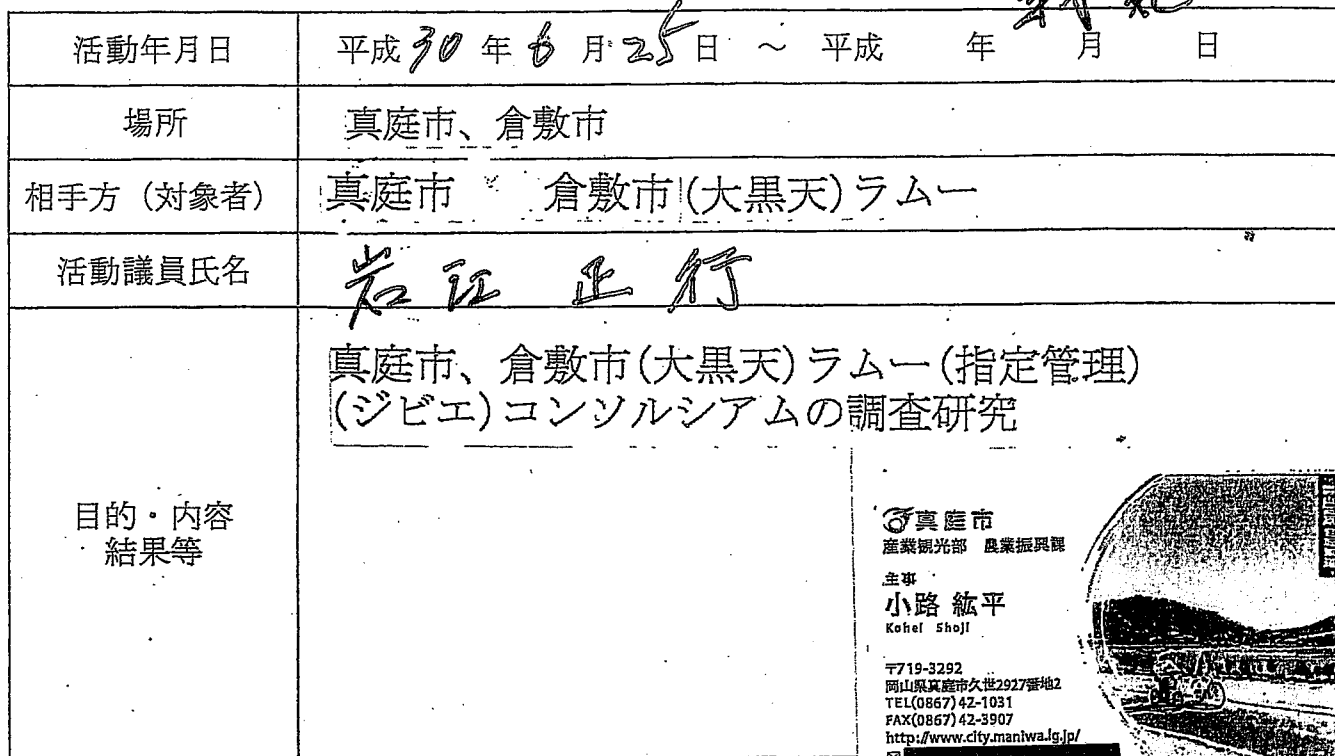 活動年月日
平成30年6月25日 ~ 平成 年 月 日
場所
真庭市、倉敷市
相手方（対象者）
真庭市 倉敷市(大黒天)ラムー
活動議員氏名
岩江 正行
目的・内容
結果等
真庭市、倉敷市(大黒天)ラムー(指定管理)
(ジビエ)コンソルシアムの調査研究
真庭市
産業観光部 農業振興課
主事
小路 紘平
Kohei Shoji
〒719-3292
岡山県真庭市久世2927番地2
TEL(0867)42-1031
FAX(0867)42-3907
http://www.city.maniwa.lg.jp/